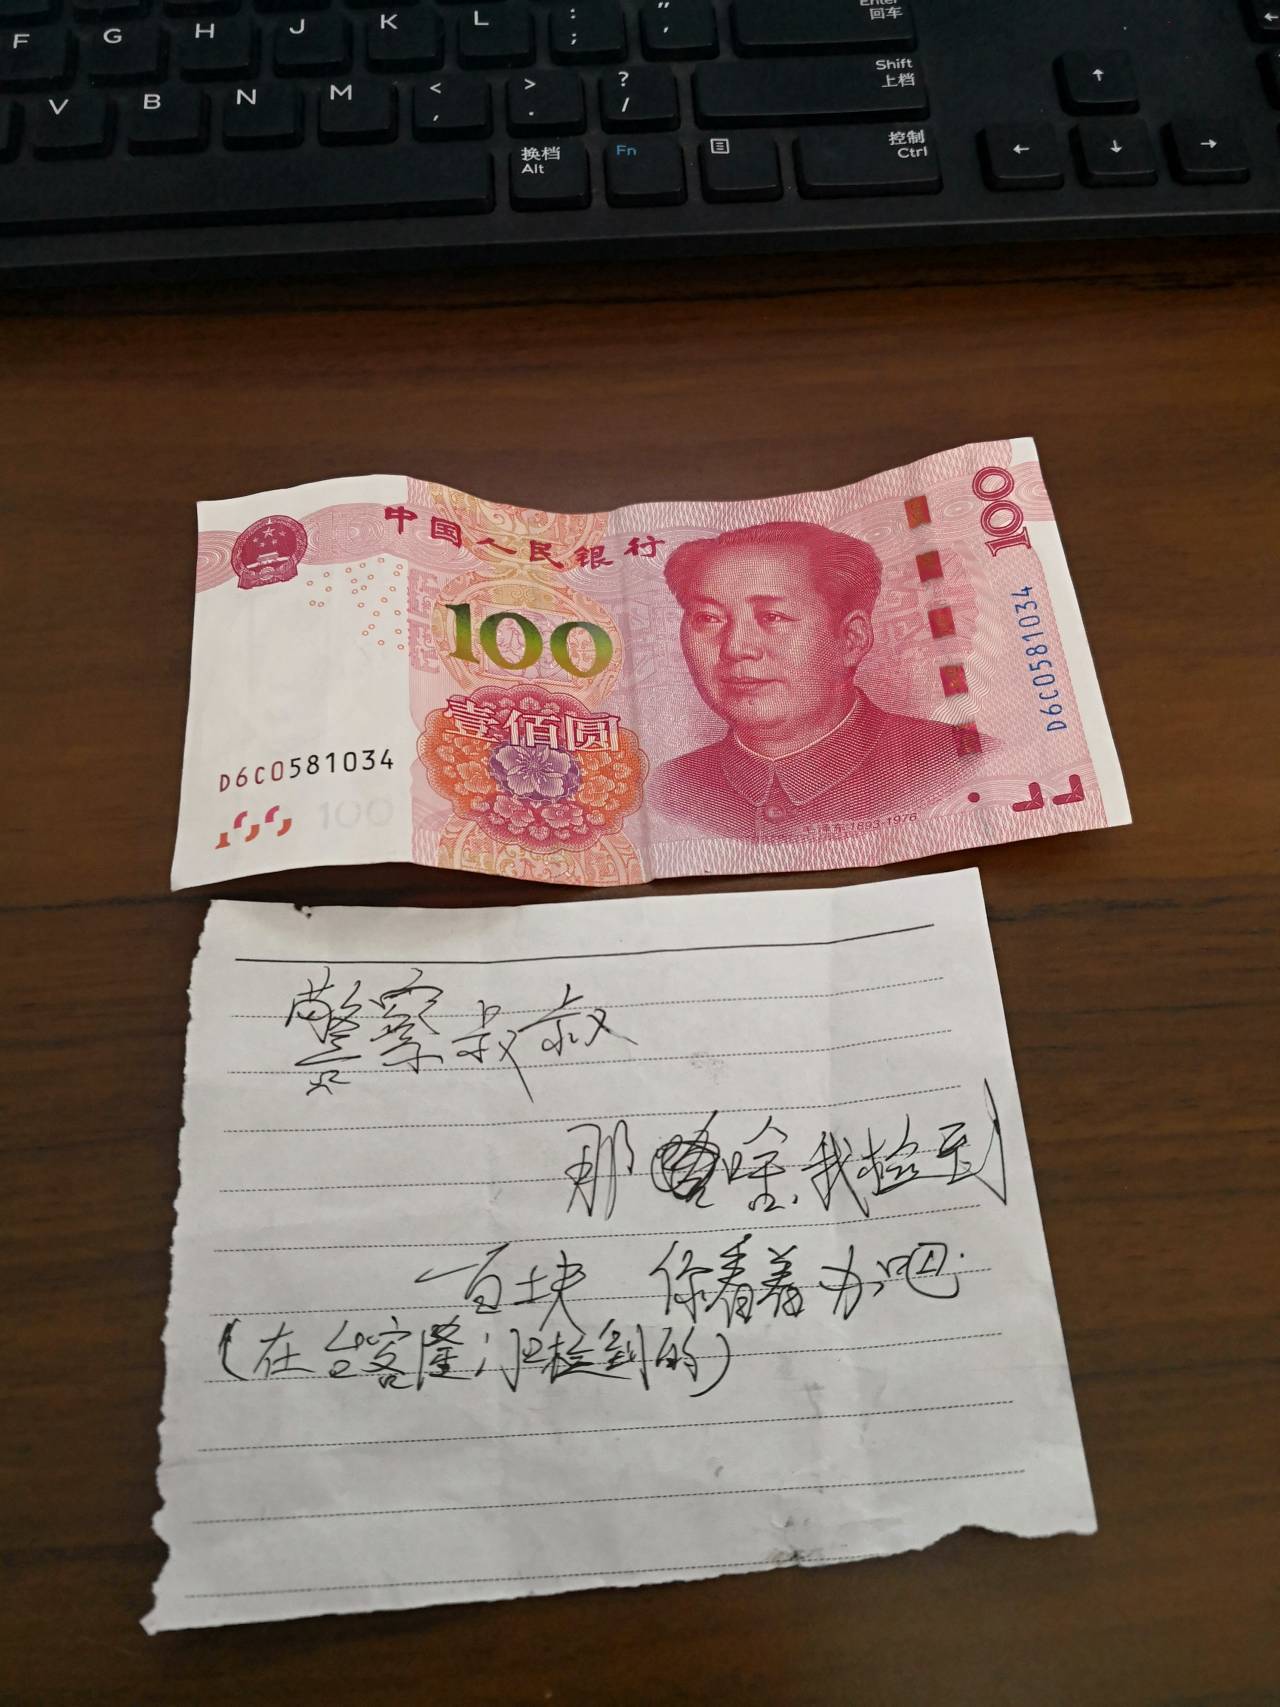 F G H J K L : ; " ' Enter 回车
V B N M < , > . ? / Shift 上档 ↑
换档 Alt Fn 控制 Ctrl ← ↓ →
中国人民银行
100
100
壹佰圆
D6C0581034
D6C0581034
100
毛泽东 1893-1976
警察叔叔
那啥我捡到
一百块 你看着办吧.
(在台客隆门口捡到的)